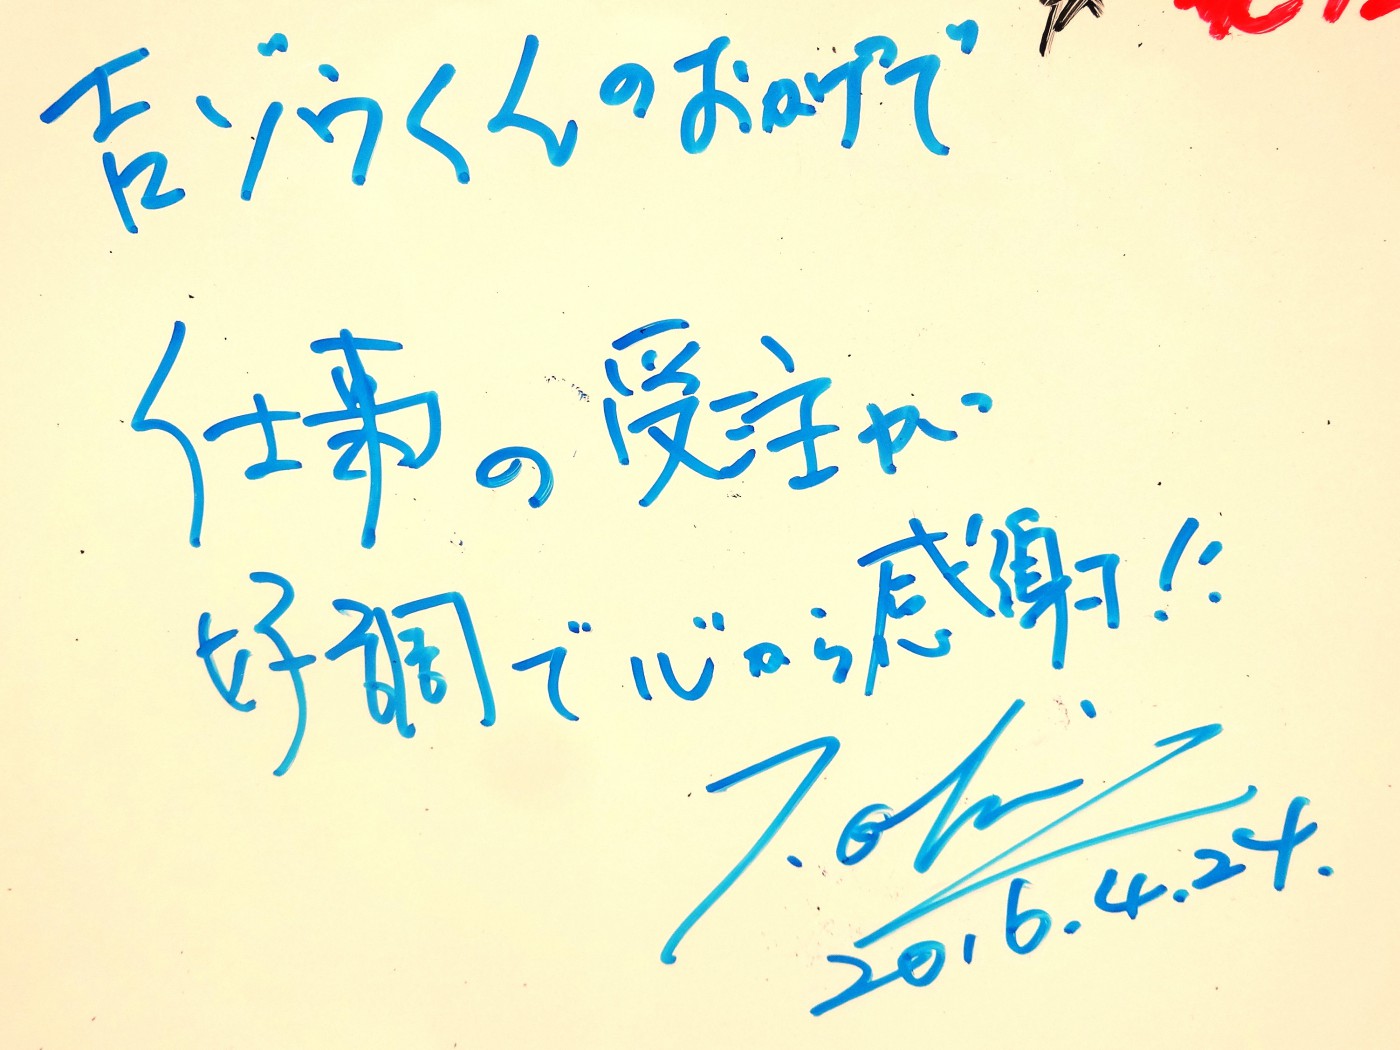 吉ゾウくんのおかげで
仕事の受注が
好調で心から感謝!!
2016.4.24.